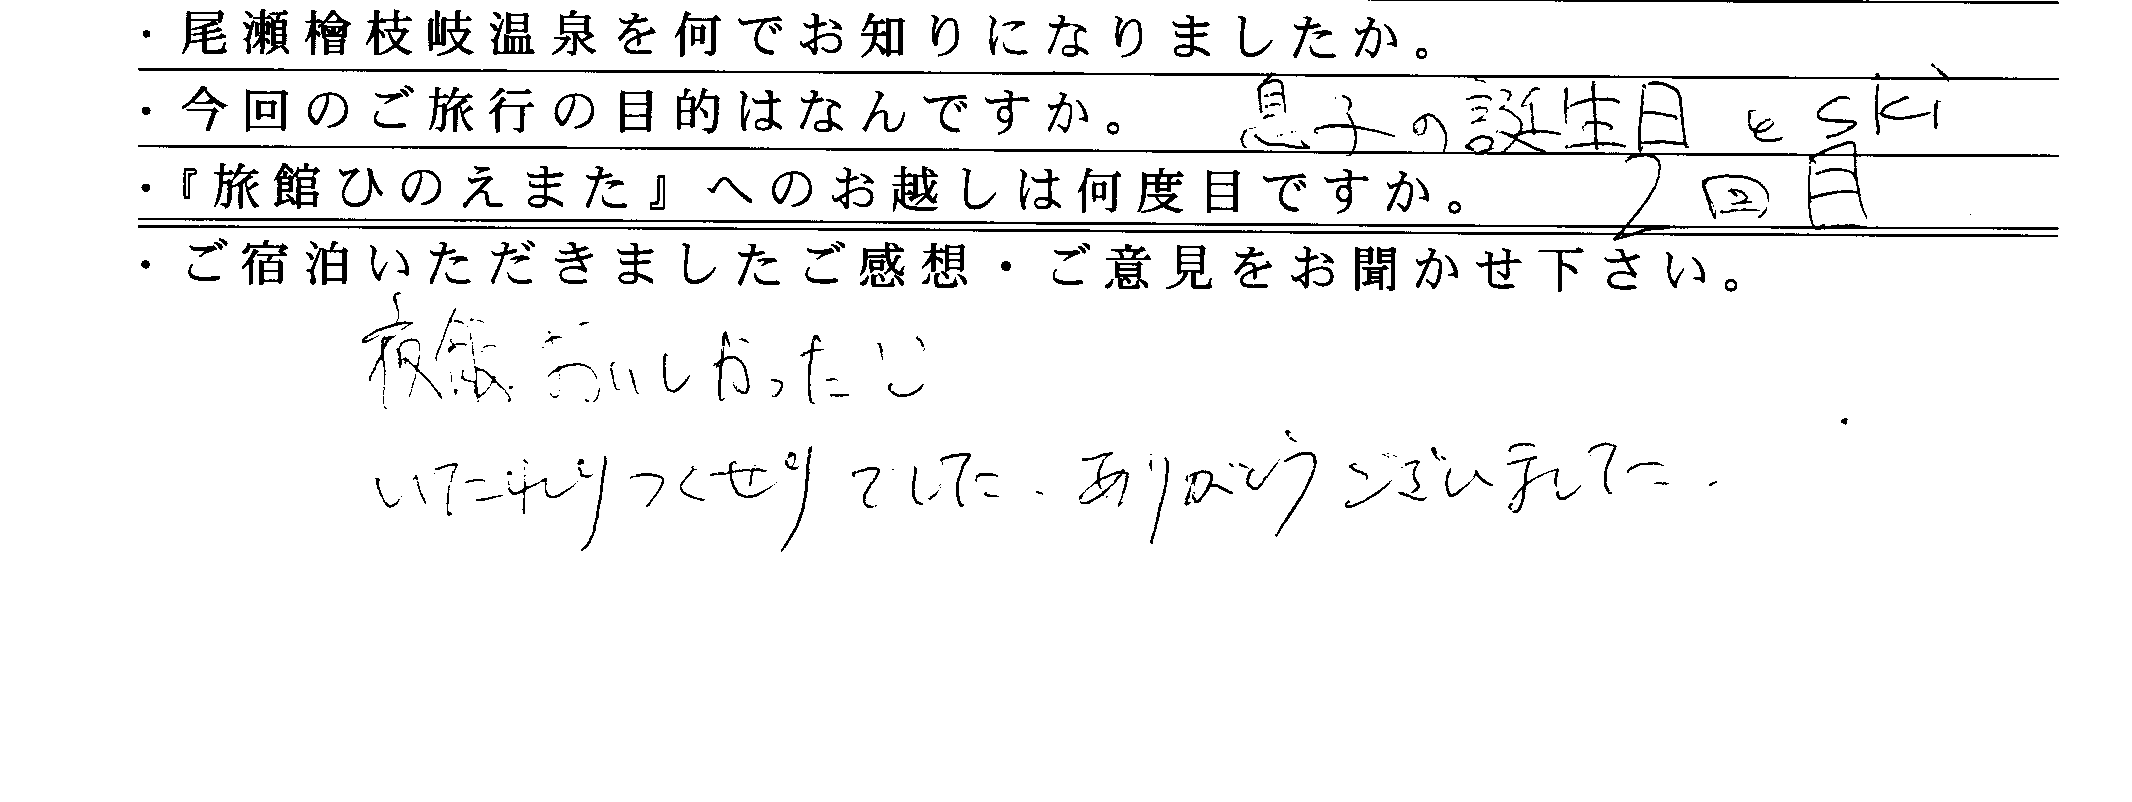 ・尾瀬檜枝岐温泉を何でお知りになりましたか。
・今回のご旅行の目的はなんですか。 息子の誕生日と ski
・『旅館ひのえまた』へのお越しは何度目ですか。 2回目
・ご宿泊いただきましたご感想・ご意見をお聞かせ下さい。
夜飯おいしかったし
いたれりつくせりでした. ありがとうございました.